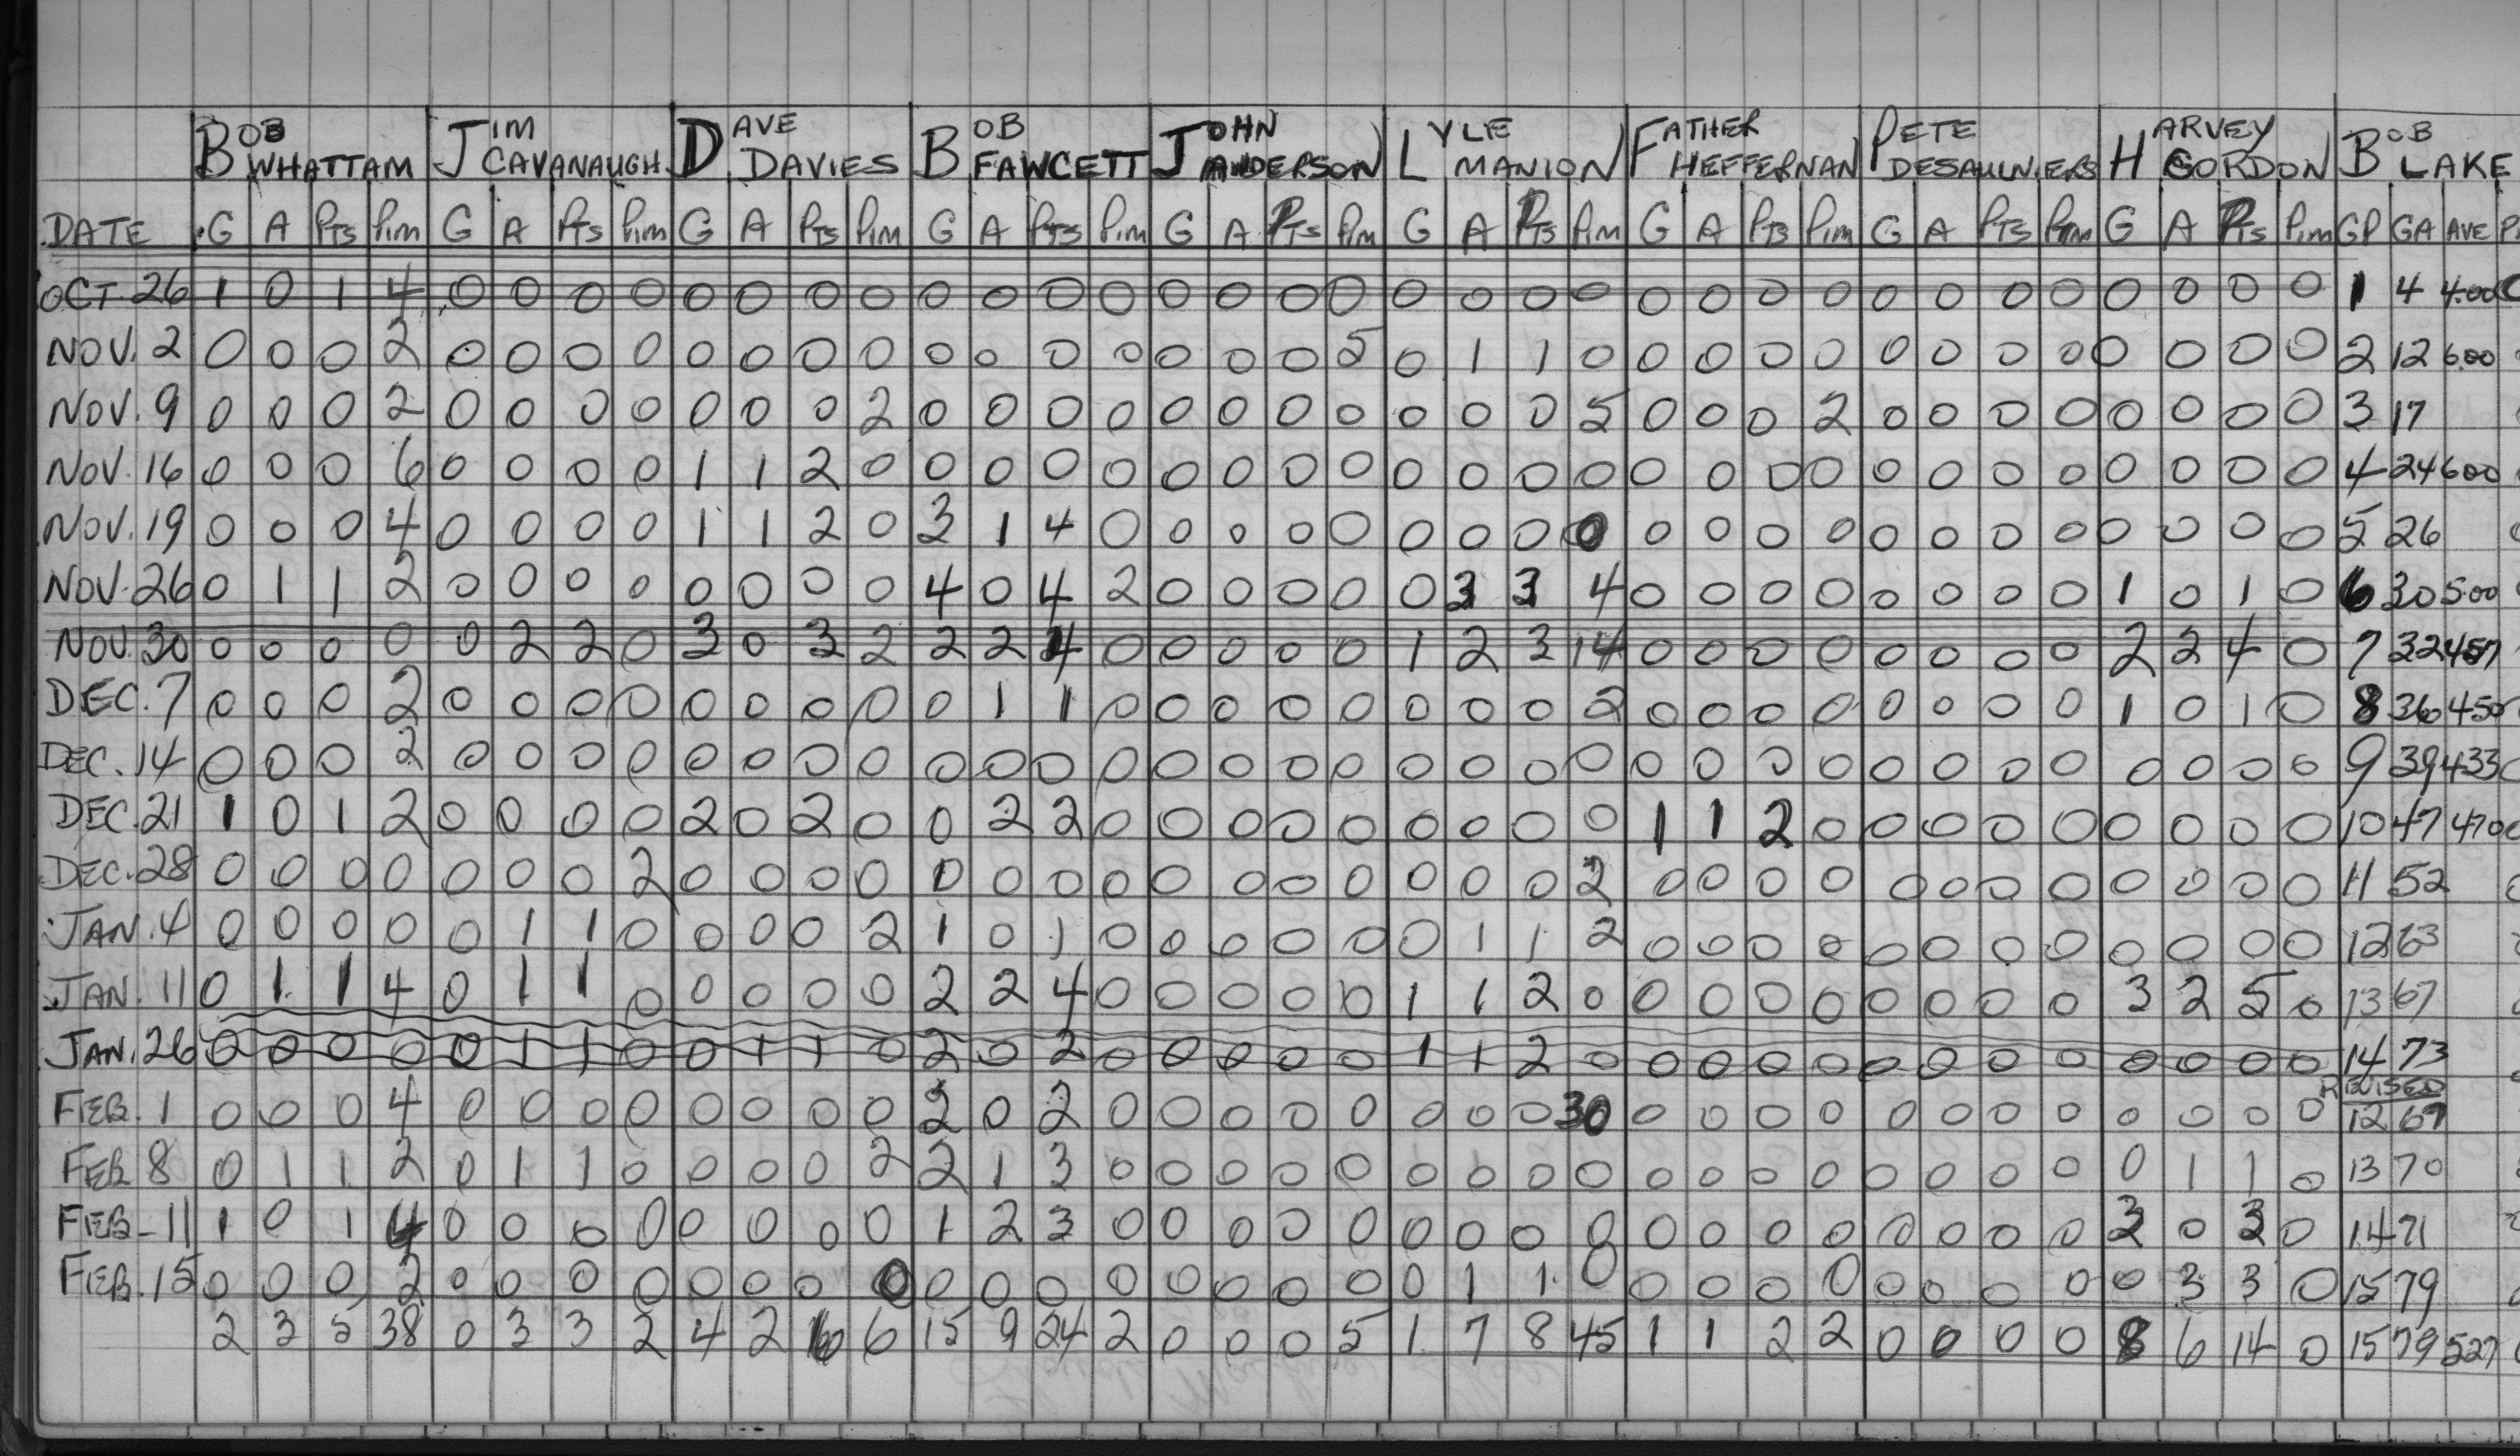 BOB WHATTAM JIM CAVANAUGH DAVE DAVIES BOB FAWCETT JOHN ANDERSON LYLE MANION FATHER HEFFERNAN PETE DESAULNIERS HARVEY GORDON BOB LAKE
DATE G A PTS Pim G A PTS Pim G A PTS Pim G A PTS Pim G A PTS Pim G A PTS Pim G A PTS Pim G A PTS Pim G A PTS Pim GP GA AVE
OCT. 26 1 0 1 4 0 0 0 0 0 0 0 0 0 0 0 0 0 0 0 0 0 0 0 0 0 0 0 0 0 0 0 0 0 0 0 0 1 4 4.00
NOV. 2 0 0 0 2 0 0 0 0 0 0 0 0 0 0 0 0 0 0 0 5 0 1 1 0 0 0 0 0 0 0 0 0 0 0 0 0 2 12 6.00
NOV. 9 0 0 0 2 0 0 0 0 0 0 0 2 0 0 0 0 0 0 0 0 0 0 0 5 0 0 0 2 0 0 0 0 0 0 0 0 3 17
NOV. 16 0 0 0 6 0 0 0 0 1 1 2 0 0 0 0 0 0 0 0 0 0 0 0 0 0 0 0 0 0 0 0 0 0 0 0 0 4 24 600
NOV. 19 0 0 0 4 0 0 0 0 1 1 2 0 3 1 4 0 0 0 0 0 0 0 0 0 0 0 0 0 0 0 0 0 0 0 0 0 5 26
NOV. 26 0 1 1 2 0 0 0 0 0 0 0 0 4 0 4 2 0 0 0 0 0 3 3 4 0 0 0 0 0 0 0 0 1 0 1 0 6 30 5.00
NOV. 30 0 0 0 0 0 2 2 0 3 0 3 2 2 2 4 0 0 0 0 0 1 2 3 14 0 0 0 0 0 0 0 0 2 2 4 0 7 32 457
DEC. 7 0 0 0 2 0 0 0 0 0 0 0 0 0 1 1 0 0 0 0 0 0 0 0 2 0 0 0 0 0 0 0 0 1 0 1 0 8 36 450
DEC. 14 0 0 0 2 0 0 0 0 0 0 0 0 0 0 0 0 0 0 0 0 0 0 0 0 0 0 0 0 0 0 0 0 0 0 0 0 9 39 433
DEC. 21 1 0 1 2 0 0 0 0 2 0 2 0 0 2 2 0 0 0 0 0 0 0 0 0 1 1 2 0 0 0 0 0 0 0 0 0 10 47 470
DEC. 28 0 0 0 0 0 0 0 2 0 0 0 0 0 0 0 0 0 0 0 0 0 0 0 2 0 0 0 0 0 0 0 0 0 0 0 0 11 52
JAN. 4 0 0 0 0 0 1 1 0 0 0 0 2 1 0 1 0 0 0 0 0 0 1 1 2 0 0 0 0 0 0 0 0 0 0 0 0 12 63
JAN. 11 0 1 1 4 0 1 1 0 0 0 0 0 2 2 4 0 0 0 0 0 1 1 2 0 0 0 0 0 0 0 0 0 3 2 5 0 13 67
JAN. 26 0 0 0 0 0 1 1 0 0 1 1 0 2 0 2 0 0 0 0 0 1 1 2 0 0 0 0 0 0 0 0 0 0 0 0 0 14 73
REVISED
FEB. 1 0 0 0 4 0 0 0 0 0 0 0 0 2 0 2 0 0 0 0 0 0 0 0 30 0 0 0 0 0 0 0 0 0 0 0 0 12 69
FEB 8 0 1 1 2 0 1 1 0 0 0 0 2 2 1 3 0 0 0 0 0 0 0 0 0 0 0 0 0 0 0 0 0 0 1 1 0 13 70
FEB-11 1 0 1 4 0 0 0 0 0 0 0 0 1 2 3 0 0 0 0 0 0 0 0 0 0 0 0 0 0 0 0 0 3 0 3 0 14 71
FEB. 15 0 0 0 2 0 0 0 0 0 0 0 0 0 0 0 0 0 0 0 0 0 1 1 0 0 0 0 0 0 0 0 0 0 3 3 0 15 79
2 3 5 38 0 3 3 2 4 2 6 6 15 9 24 2 0 0 0 5 1 7 8 45 1 1 2 2 0 0 0 0 8 6 14 0 15 79 527